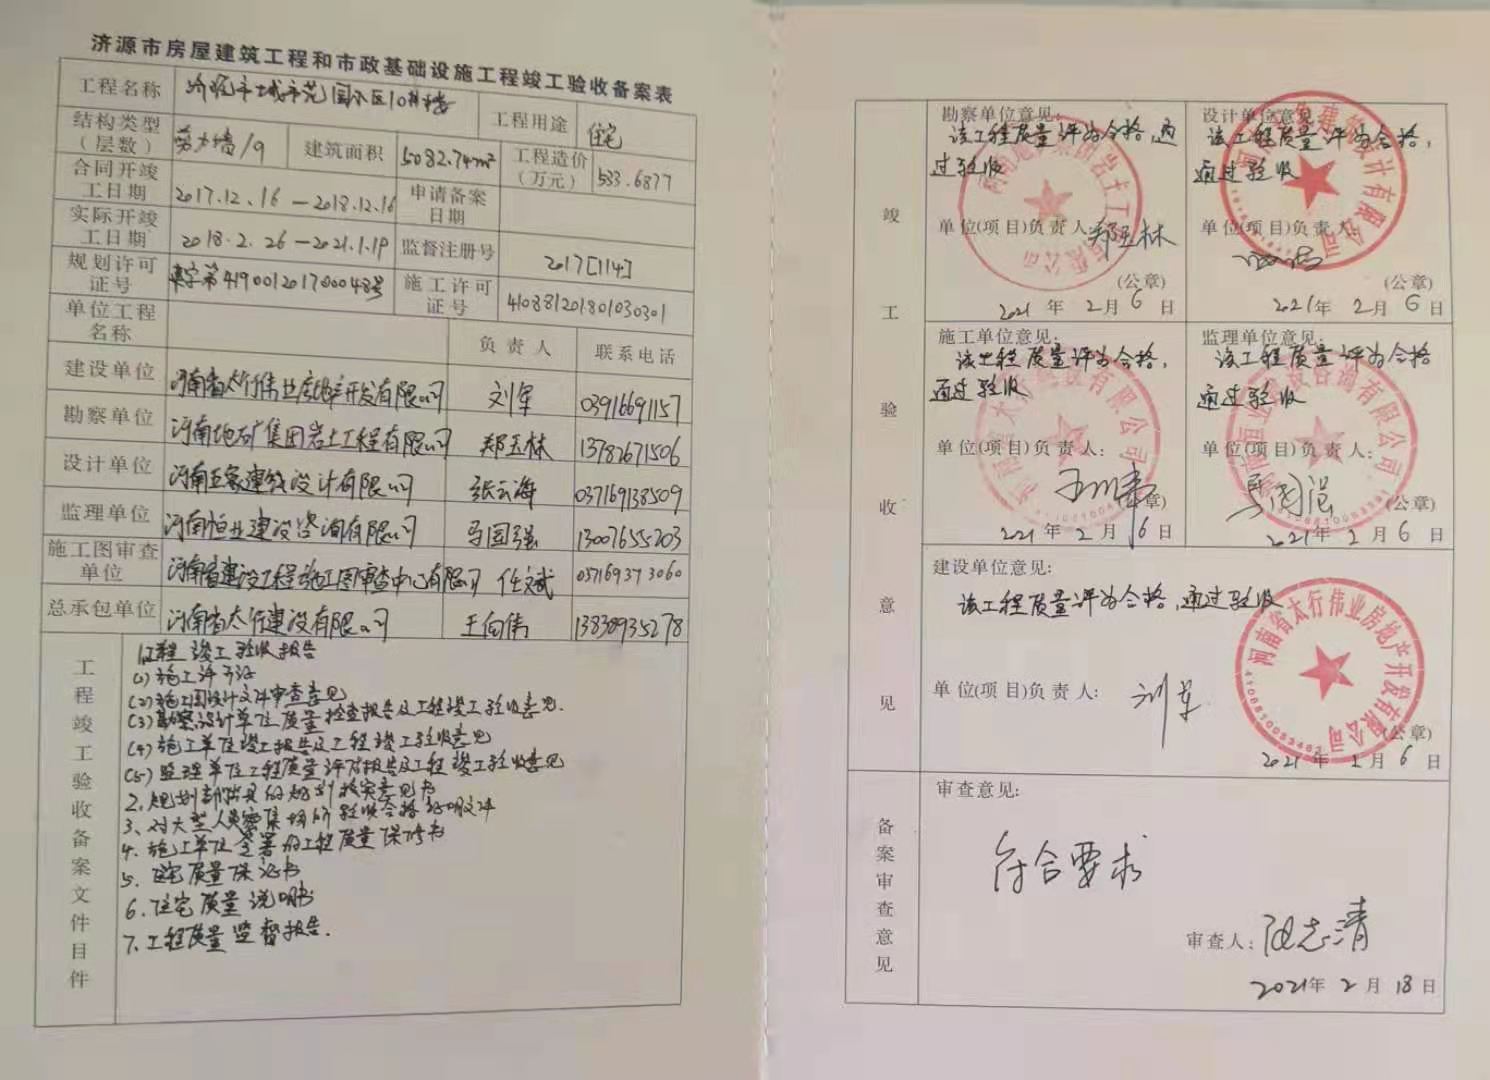 济源市房屋建筑工程和市政基础设施工程竣工验收备案表
工程名称 济源市土城市花园小区10#楼 工程用途 住宅
结构类型(层数) 剪力墙/9 建筑面积 5082.74m² 工程造价(万元) 533.6877
合同开竣工日期 2017.12.16—2018.12.16 申请备案日期
实际开竣工日期 2018.2.26—2021.1.19 监督注册号 2017[114]
规划许可证号 建字第419001201700048号 施工许可证号 410881201801030301
单位工程名称 负责人 联系电话
建设单位 河南省太行伟业房地产开发有限公司 刘军 03916691157
勘察单位 河南地矿集团岩土工程有限公司 郑玉林 13782671506
设计单位 河南五象建筑设计有限公司 张云海 037169138509
监理单位 河南恒业建设咨询有限公司 马国强 13007655203
施工图审查单位 河南省建设工程施工图审查中心有限公司 任文斌 037169373060
总承包单位 河南省太行建设有限公司 王向伟 13838935278
工程竣工验收备案文件目件
1工程竣工验收报告
(1)施工许可证
(2)施工图设计文件审查意见
(3)勘察设计单位质量检查报告及工程竣工验收意见.
(4)施工单位竣工报告及工程竣工验收意见
(5)监理单位工程质量评估报告及工程竣工验收意见
2.规划部门出具的规划核实意见书
3、对大型人员密集场所验收合格证明文件
4.施工单位签署的工程质量保修书
5.住宅质量保证书
6.住宅质量说明书
7.工程质量监督报告.
竣工验收意见
勘察单位意见:
该工程质量评为合格,通过验收
单位(项目)负责人: 郑玉林
(公章)
2021年2月6日
设计单位意见:
该工程质量评为合格,通过验收
单位(项目)负责人:
(公章)
2021年2月6日
施工单位意见:
该工程质量评为合格,通过验收
单位(项目)负责人:
(公章)
2021年2月6日
监理单位意见:
该工程质量评为合格通过验收
单位(项目)负责人:
马国强
(公章)
2021年2月6日
建设单位意见:
该工程质量评为合格,通过验收
单位(项目)负责人: 刘军
河南省太行伟业房地产开发有限公司
(公章)
2021年2月6日
备案审查意见
审查意见:
符合要求
审查人:
2021年2月18日